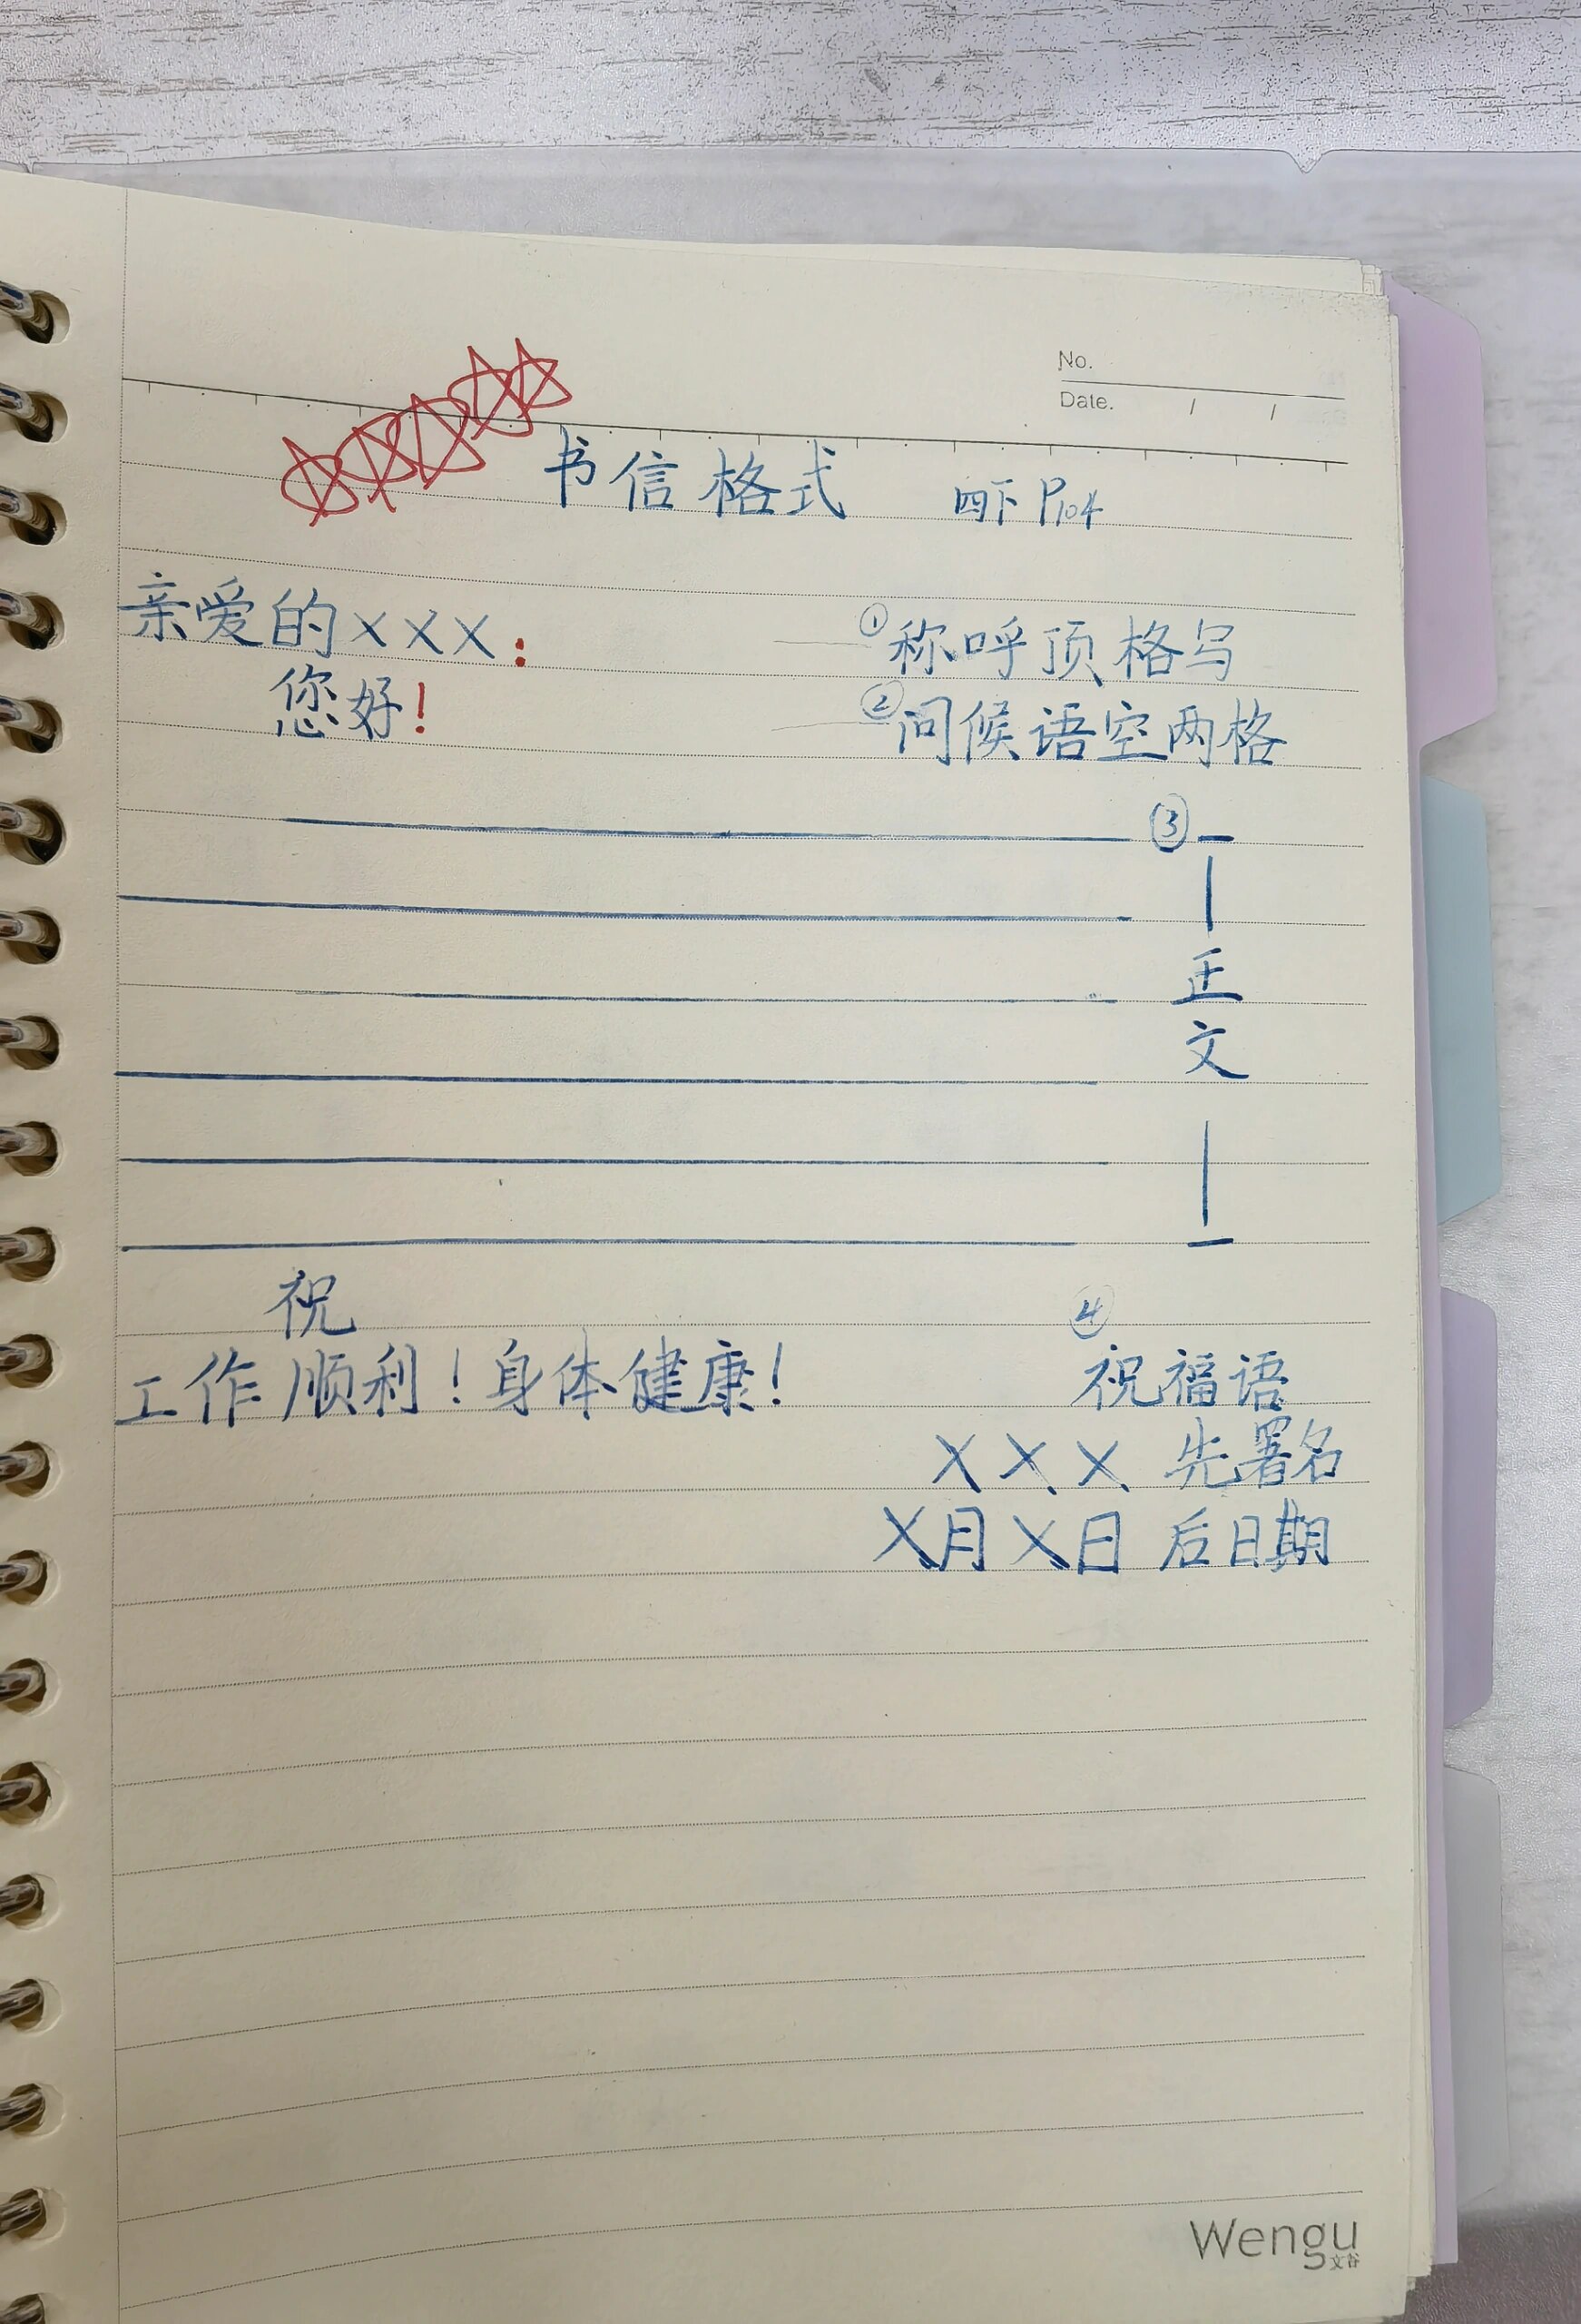 No.
Date. / /
书信格式 四下 P104
亲爱的×××： ①称呼顶格写
您好！ ②问候语空两格
③
正
文
祝 ④
工作顺利！身体健康！ 祝福语
××× 先署名
×月×日 后日期
Wengu
文谷